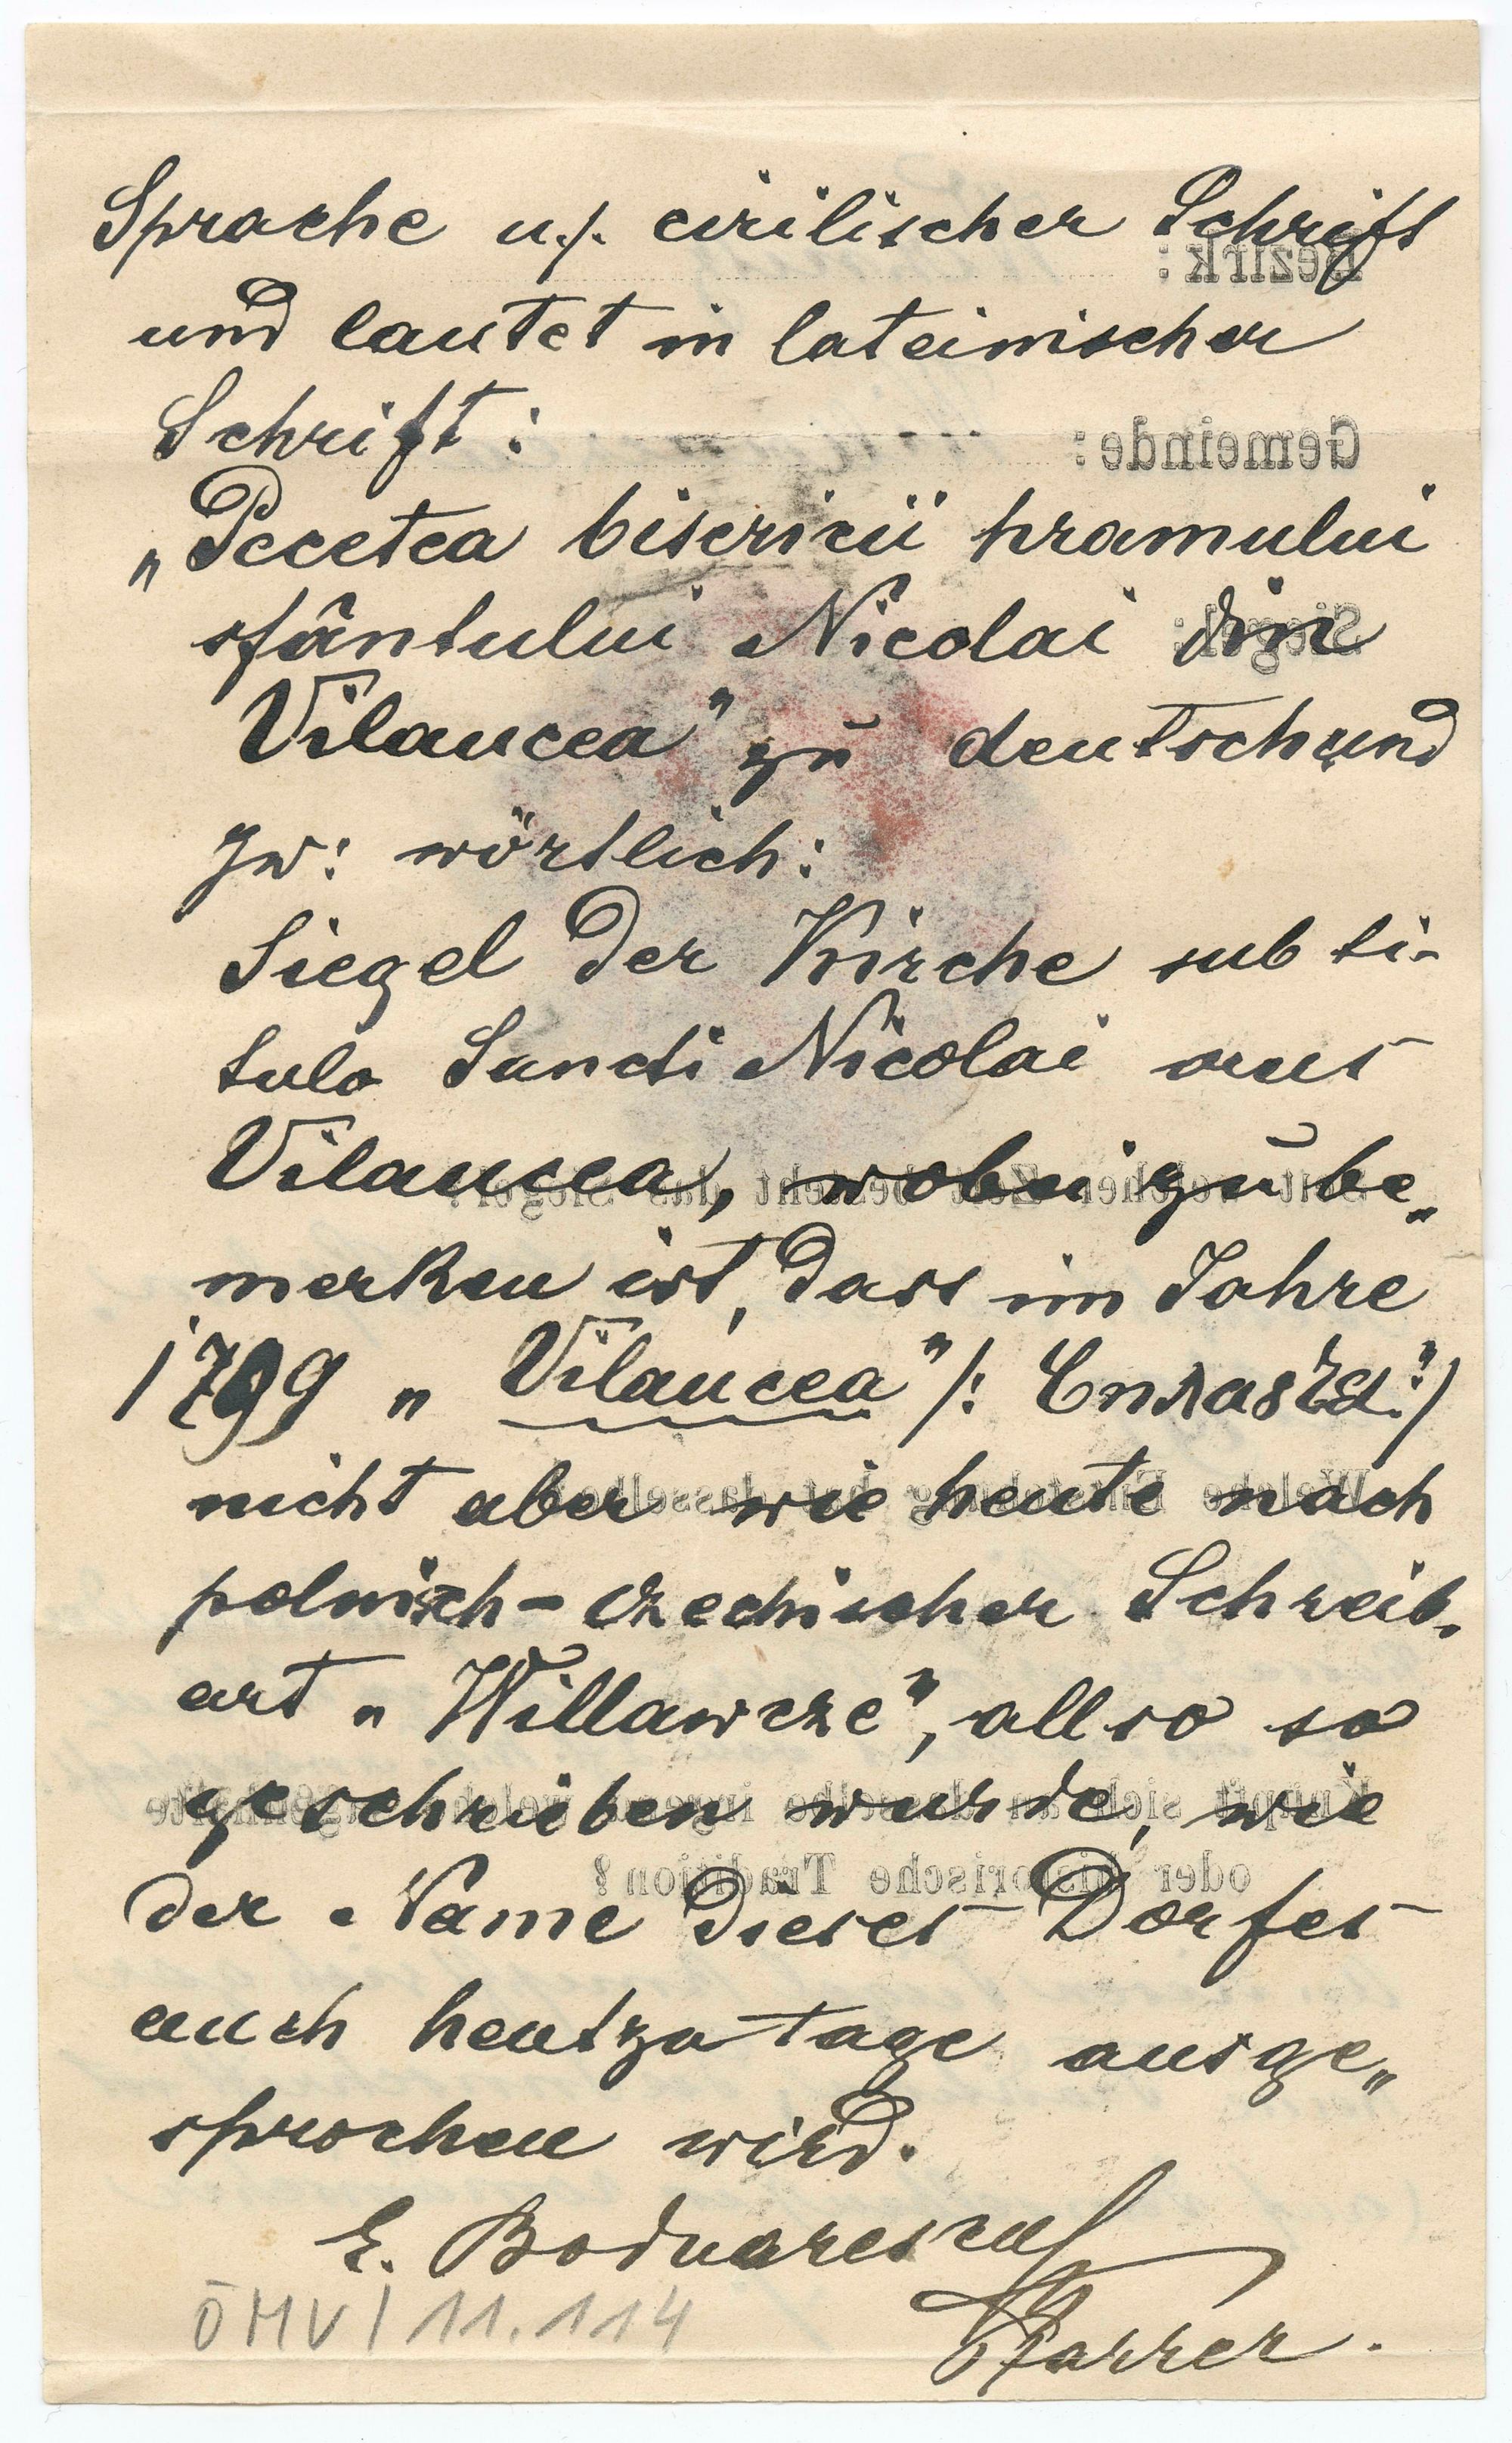 Sprache u./. cirilischer Schrift
und lautet in lateinischer
Schrift:
„Pecetea bisericii hramului
sfântului Nicolai din
Vilaucea" zu deutsch und
zw: wörtlich:
Siegel der Kirche sub ti-
tulo Sancti Nicolai aus
Vilaucea, wobei zu be„
merken ist, dass im Jahre
1799 „Vilaucea" /:
nicht aber wie heute nach
polnisch-czechischer Schreib-
art „Willawcze", allso so
geschrieben wurde, wie
der Name dieses Dorfes
auch heutzutage ausge„
sprochen wird.
E. Bodnarescul
Pfarrer.
ÖMV/11.114
Bezirk:
Gemeinde:
Siegel:
oder historische Tradition?